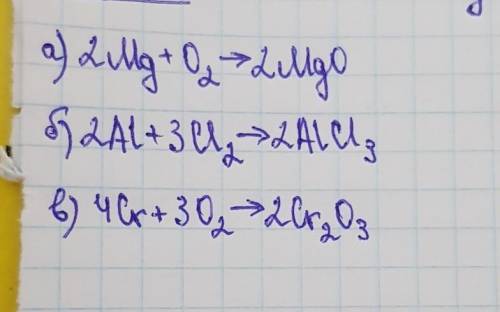 а) 2Mg + O₂ → 2MgO
б) 2Al + 3Cl₂ → 2AlCl₃
в) 4Cr + 3O₂ → 2Cr₂O₃